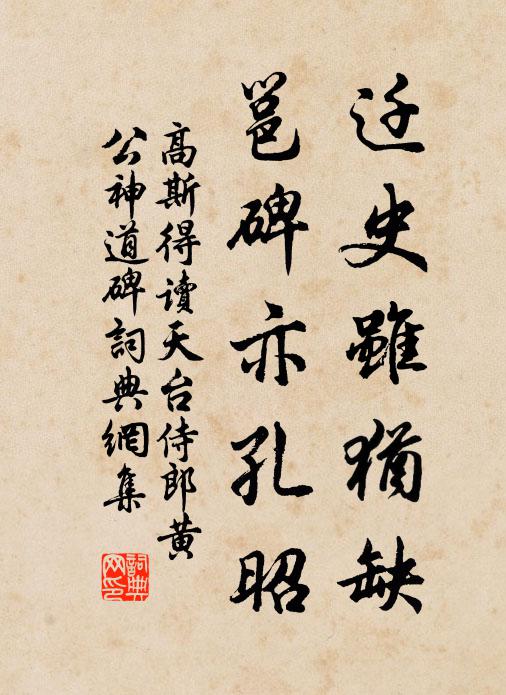 迁史雖猶缺
邕碑亦孔昭
高斯得讀天台侍郎黄
公神道碑詞典網集
詞典
网印